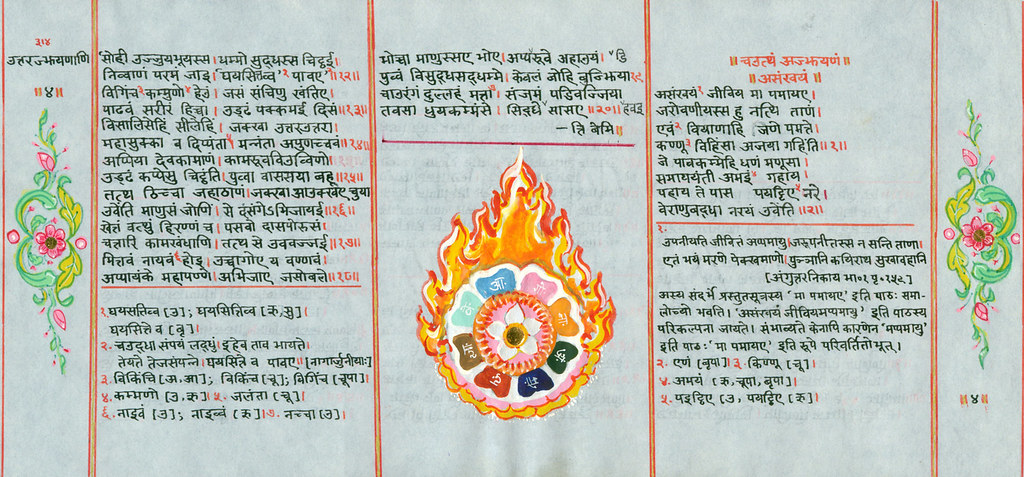 ३१४
उत्तरज्झयणाणि
॥४॥
सोही उज्जुयभूयस्स।धम्मो सुद्धस्स चिट्ठई
निव्वाणं परमं जाइ।घयसित्तिव्व² पावए॥१२॥
विगिंच³ कम्मुणो⁴ हेउं। जसं संचिणु खंतिए
पाढवं सरीरं हिच्चा। उड्ढं पक्कमई दिसं॥१३॥
विसालिसेहिं सीलेहिं। जक्खा उत्तरउत्तरा।
महासुक्का व दिप्पंता⁵ मन्नंता अपुणच्चवं॥१४॥
अप्पिया देवकामाणं। कामरूवविउव्विणो
उड्ढं कप्पेसु चिट्ठंति। पुव्वा वाससया बहू॥१५॥
तत्थ ठिच्चा जहाठाणं।जक्खा आउक्खए चुया
उवेंति माणुसं जोणिं। से दसंगेऽभिजायई॥१६॥
खेत्तं वत्थुं हिरण्णं च। पसवो दासपोरुसं
चत्तारि कामखंधाणि। तत्थ से उववज्जई॥१७॥
मित्तवं नायवं⁶ होइ। उच्चागोए य वण्णवं
अप्पायंके महापण्णे। अभिजाए जसोबले॥१८॥
१.घयसत्तिव्व [उ]; घयसित्तिव्व [ऋ,सु]।
घयसित्ते व [बृ]।
२.चउद्धा संपयं लद्धुं।इहेव ताव भायते।
तेयते तेजसंपन्ने। घयसित्ते व पावए॥[नागार्जुनीयाः]
३. विकिंचि [अ,आ]; विकिंच [चू]; विगिंच [चूपा]।
४. कम्मणो [उ,ऋ]। ५. जलंता [चू]।
६. नाइवं [उ]; नाइव्वं [ऋ]।७. नच्चा [उ]।
भोच्चा माणुस्सए भोए।अप्पडिरूवे अहाउयं।
पुव्वं विसुद्धसद्धम्मे। केवलं बोहि बुज्झिया॥१९
चउरंगं दुल्लहं मत्ता⁷ संजमं पडिवज्जिया
तवसा धुयकम्मंसे। सिद्धे हवइ सासए॥२०॥
—त्ति बेमि॥
॥चउत्थं अज्झयणं॥
॥असंखयं॥
असंखयं¹ जीविय मा पमायए।
जरोवणीयस्स हु नत्थि ताणं।
एवं² वियाणाहि जणे पमत्ते।
कण्णू³ विहिंसा अजया गहिंति॥१॥
जे पावकम्मेहिं धणं मणूसा।
समाययंती अमइं⁴ गहाय।
पहाय ते पास पयट्टिए⁵ नरे।
वेराणुबद्धा नरयं उवेंति॥२॥
१.
उपनीयति जीवितं अप्पमायु।जरूपनीतस्स न सन्ति ताणा।
एतं भयं मरणे पेक्खमाणो। पुञ्ञानि कयिराथ सुखावहानि
[अंगुत्तरनिकाय भा०१ पृ०१५८]
अस्य संदर्भे प्रस्तुतसूत्रस्य 'मा पमायए' इति पाठः समा-
लोच्यो भवति। 'असंखयं जीवियमप्पमायु' इति पाठस्य
परिकल्पना जायते। संभाव्यते केनापि कारणेन 'मप्पमायु'
इति पाठः 'मा पमायए' इति रूपे परिवर्तितोभूत्।
२. एणं [बृपा] ३. किण्णू [चू]
४. अमयं [ऋ, चूपा, बृपा]।
५. पइट्ठिए [उ, पयट्ठिए [ऋ]।
॥४॥